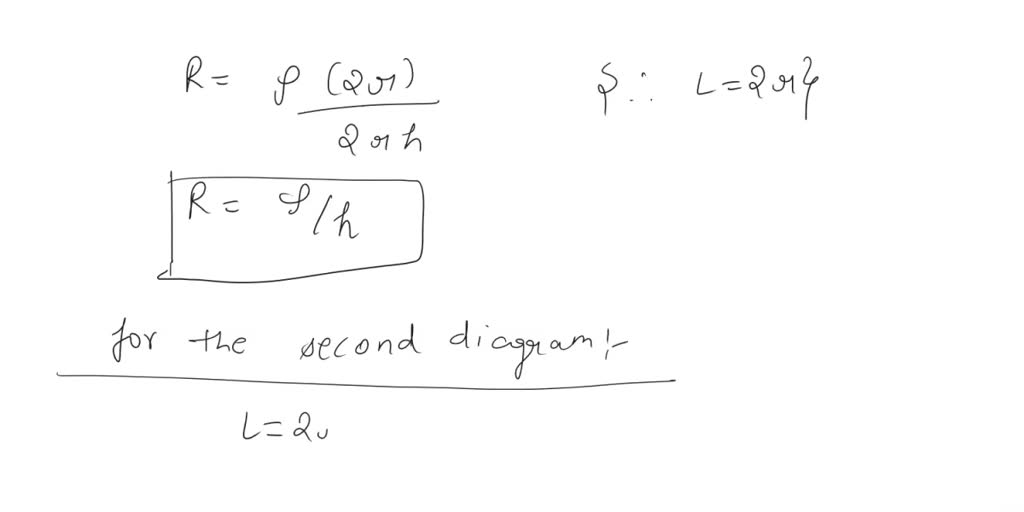 R = ρ (2r) / 2rh {∵ L = 2r}
R = ρ/h
for the second diagram:-
L = 2r